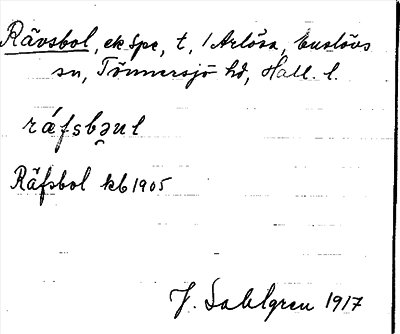 Rävsbol, ek Spe, t, 1 Arlösa, Enslövs
sn, Tönnersjö hd, Hall. l.
ráfsbəul
Räfsbol kb 1905
J. Sahlgren 1917